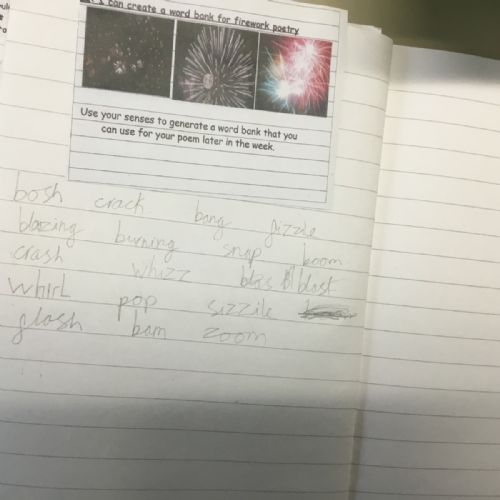 I can create a word bank for firework poetry
Use your senses to generate a word bank that you
can use for your poem later in the week.
bosh crack bang fizzle
blazing burning snap boom
crash whizz blas blast
whirl pop sizzile
flash bam zoom